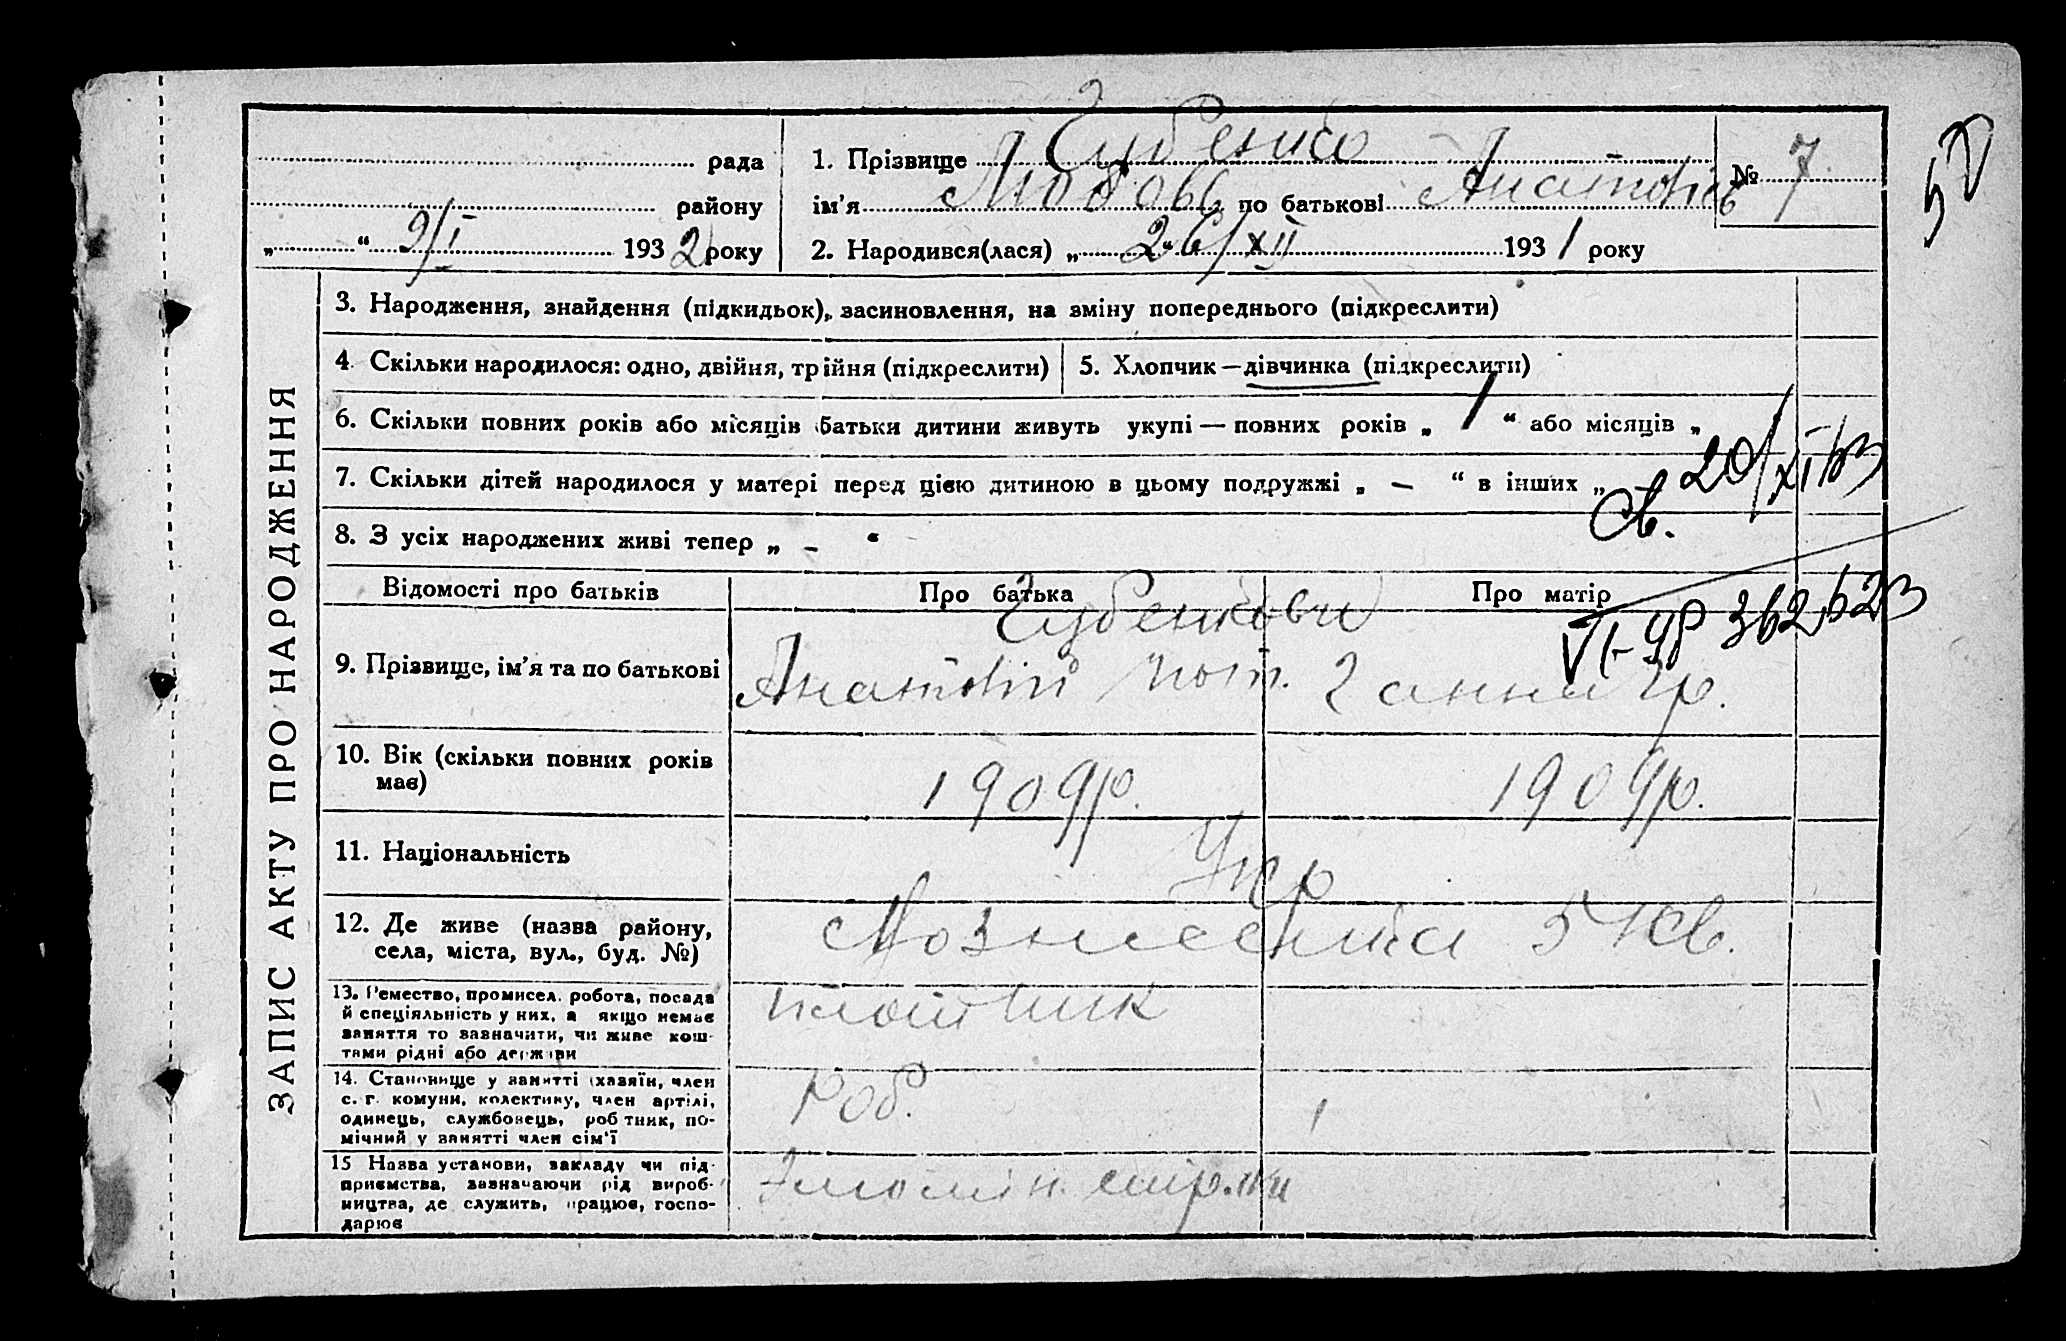 рада
району
„ “ 9/I 1932 року
1. Прізвище Губенко
ім'я Любовь по батькові Анатоліїв
2. Народився(лася) „ 26/XII 1931 року
№ 7
50
ЗАПИС АКТУ ПРО НАРОДЖЕННЯ
3. Народження, знайдення (підкидьок), засиновлення, на зміну попереднього (підкреслити)
4. Скільки народилося: одно, двійня, трійня (підкреслити)
5. Хлопчик — дівчинка (підкреслити)
6. Скільки повних років або місяців батьки дитини живуть укупі — повних років „ 1 “ або місяців „
7. Скільки дітей народилося у матері перед цією дитиною в цьому подружжі „ — “ в інших „ –
8. З усіх народжених живі тепер „ – “
св. 20/XI
VI-УР 362623
Відомості про батьків
Про батька
Про матір
9. Прізвище, ім'я та по батькові
Губенкови
Анатолій
Ганна Гр.
10. Вік (скільки повних років
має)
1909р.
1909р.
11. Національність
Укр
12. Де живе (назва району,
села, міста, вул., буд. №)
5 кв.
13. Ремество, промисел, робота, посада
й спеціяльність у них, а якщо немає
заняття то зазначити, чи живе кош-
тами рідні або держави
плотник
14. Становище у занятті (хазяїн, член
с.-г. комуни, колективу, член артілі,
одинець, службовець, робітник, по-
мічний у занятті член сім'ї
Роб.
15 Назва установи, закладу чи під-
приємства, зазначаючи рід вироб-
ництва, де служить, працює, госпо-
дарює